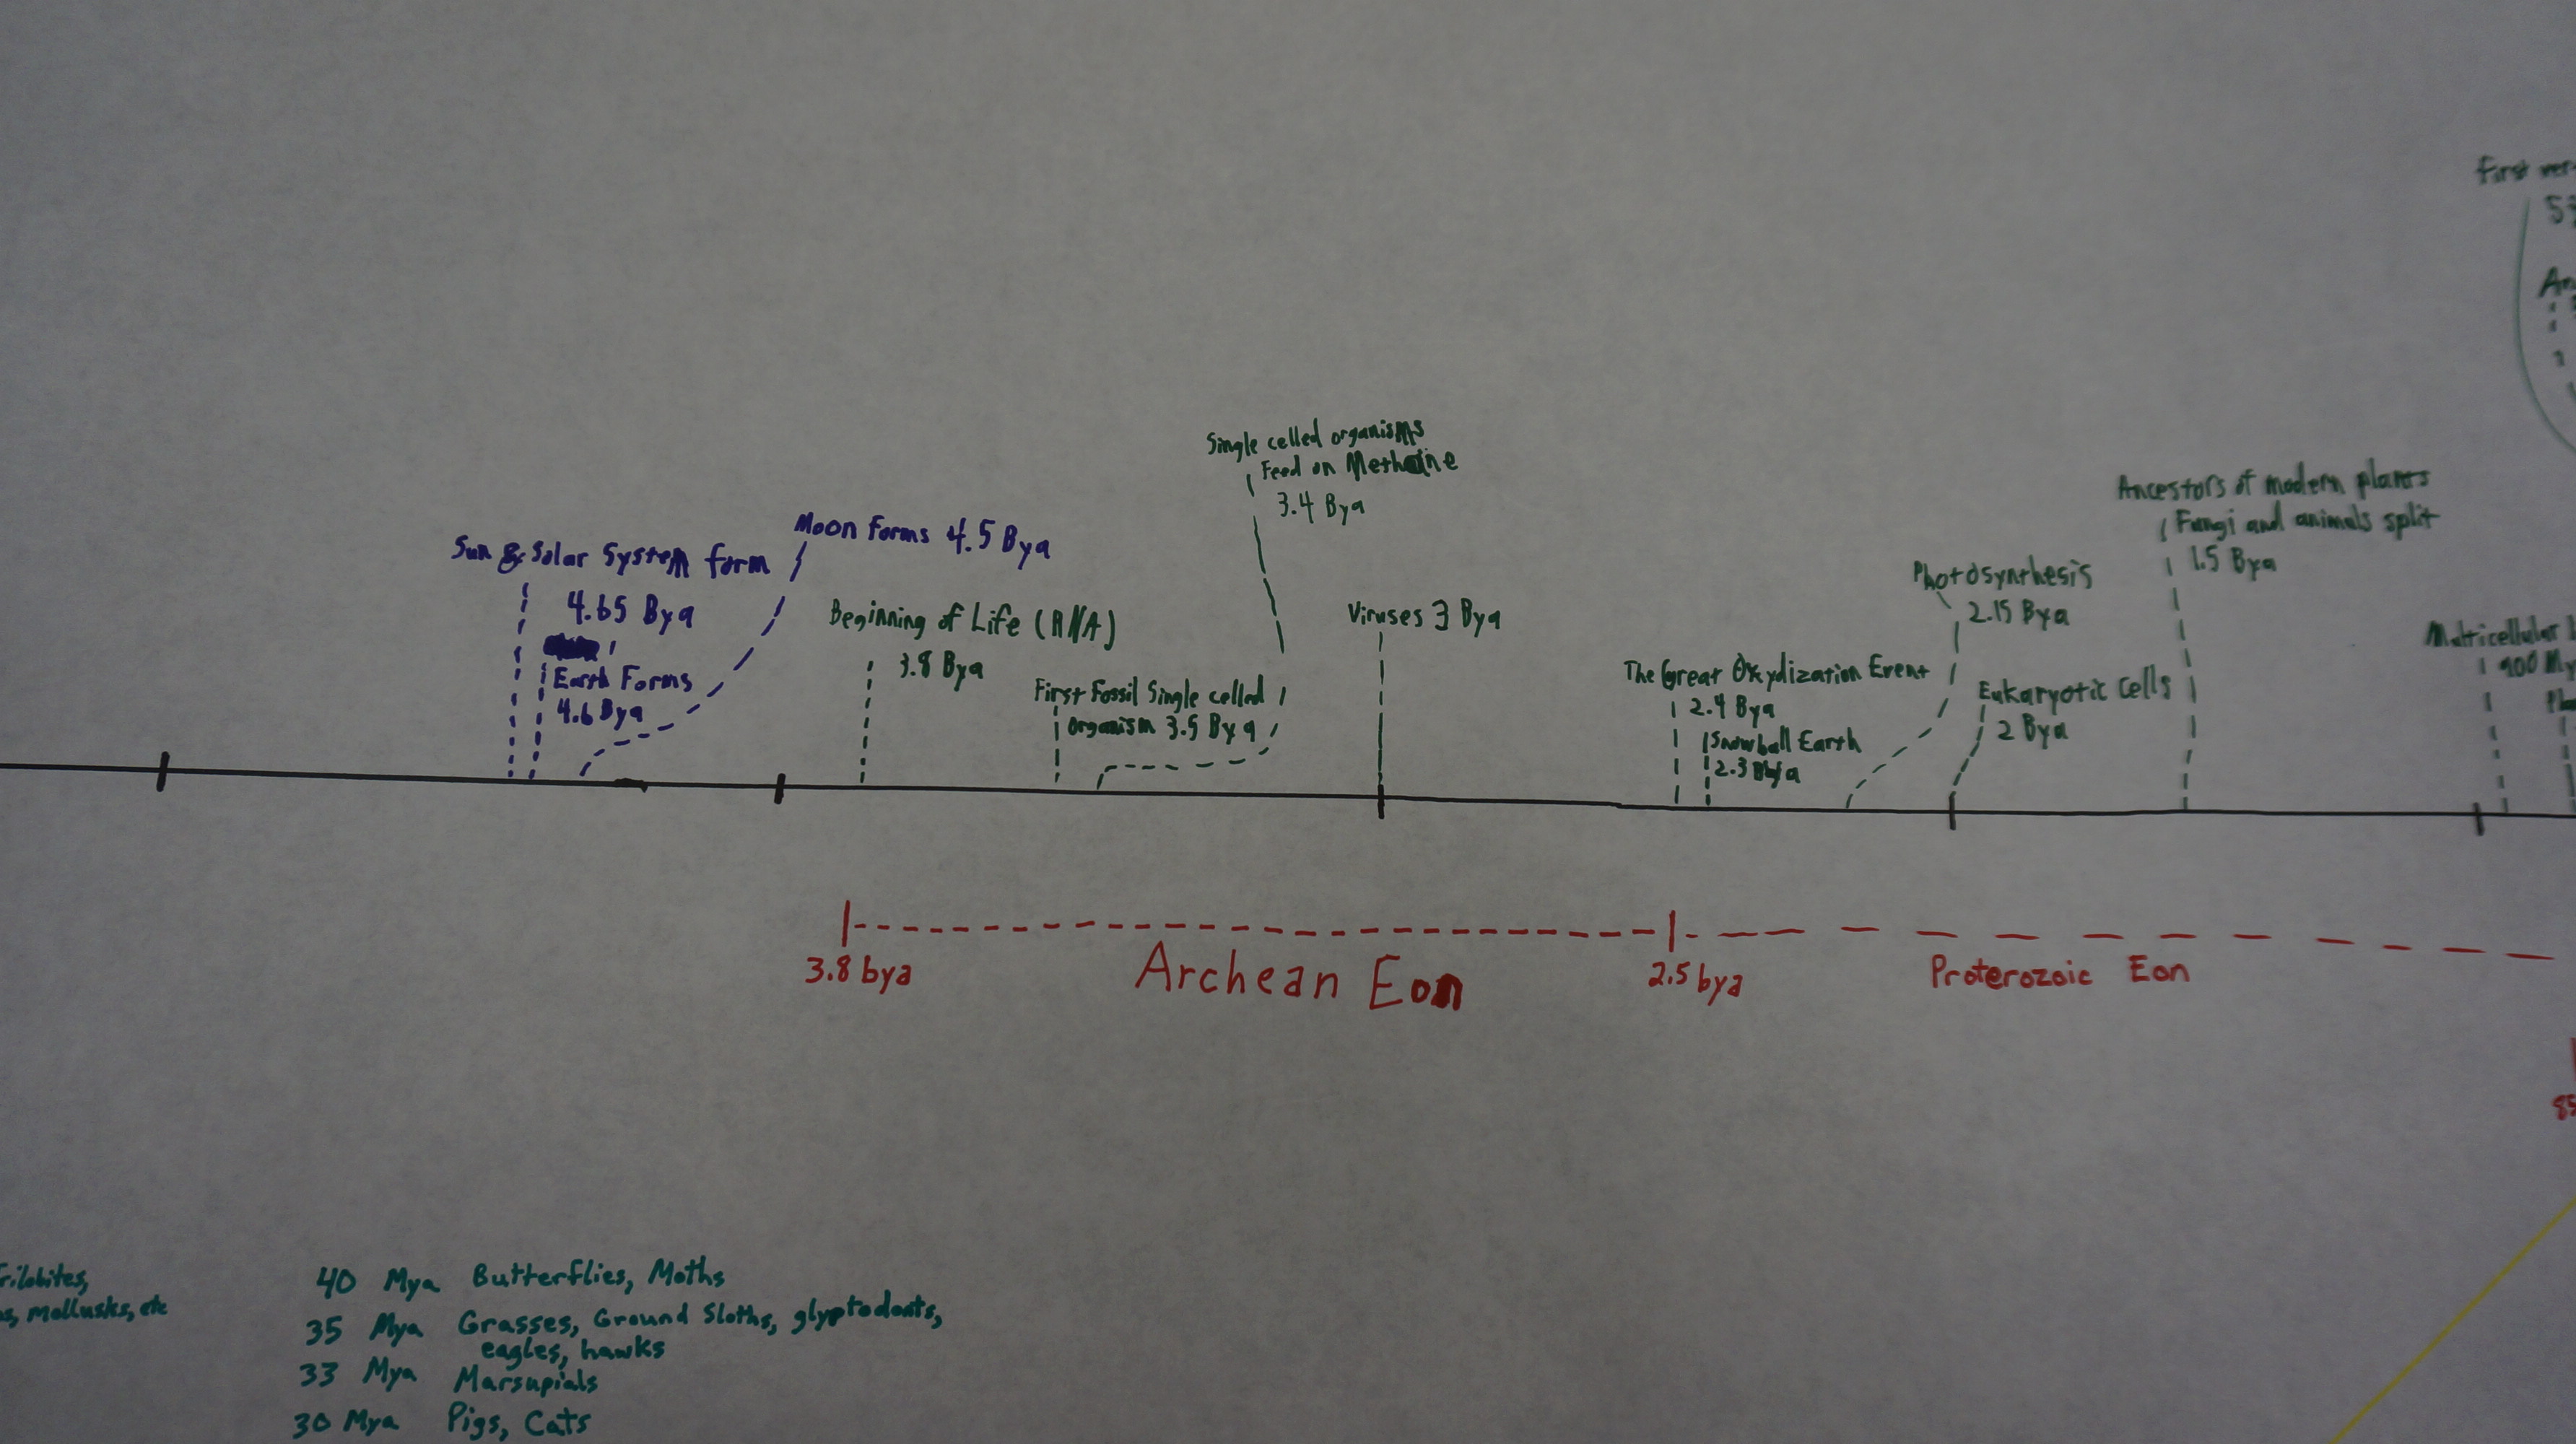 First
Sun & Solar System form
4.65 Bya
Earth Forms
4.6 Bya
Moon Forms 4.5 Bya
Beginning of Life (RNA)
3.8 Bya
First Fossil Single celled
organism 3.5 Bya
Single celled organisms
Feed on Methane
3.4 Bya
Viruses 3 Bya
The Great Oxydization Event
2.4 Bya
Snowball Earth
2.3 Bya
Photosynthesis
2.15 Bya
Eukaryotic Cells
2 Bya
Ancestors of modern plants
Fungi and animals split
1.5 Bya
Multicellular
900 My
3.8 bya
Archean Eon
2.5 bya
Proterozoic Eon
mollusks, etc
40 Mya Butterflies, Moths
35 Mya Grasses, Ground Sloths, glyptodonts,
eagles, hawks
33 Mya Marsupials
30 Mya Pigs, Cats